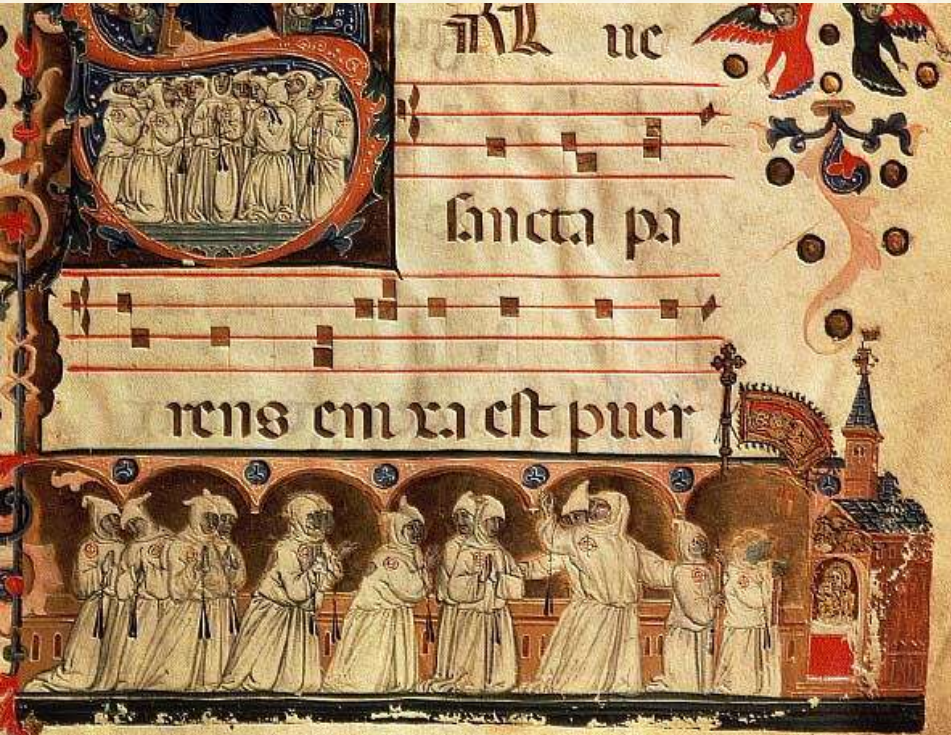 AL ue
sancta pa
rens eni xa est puer